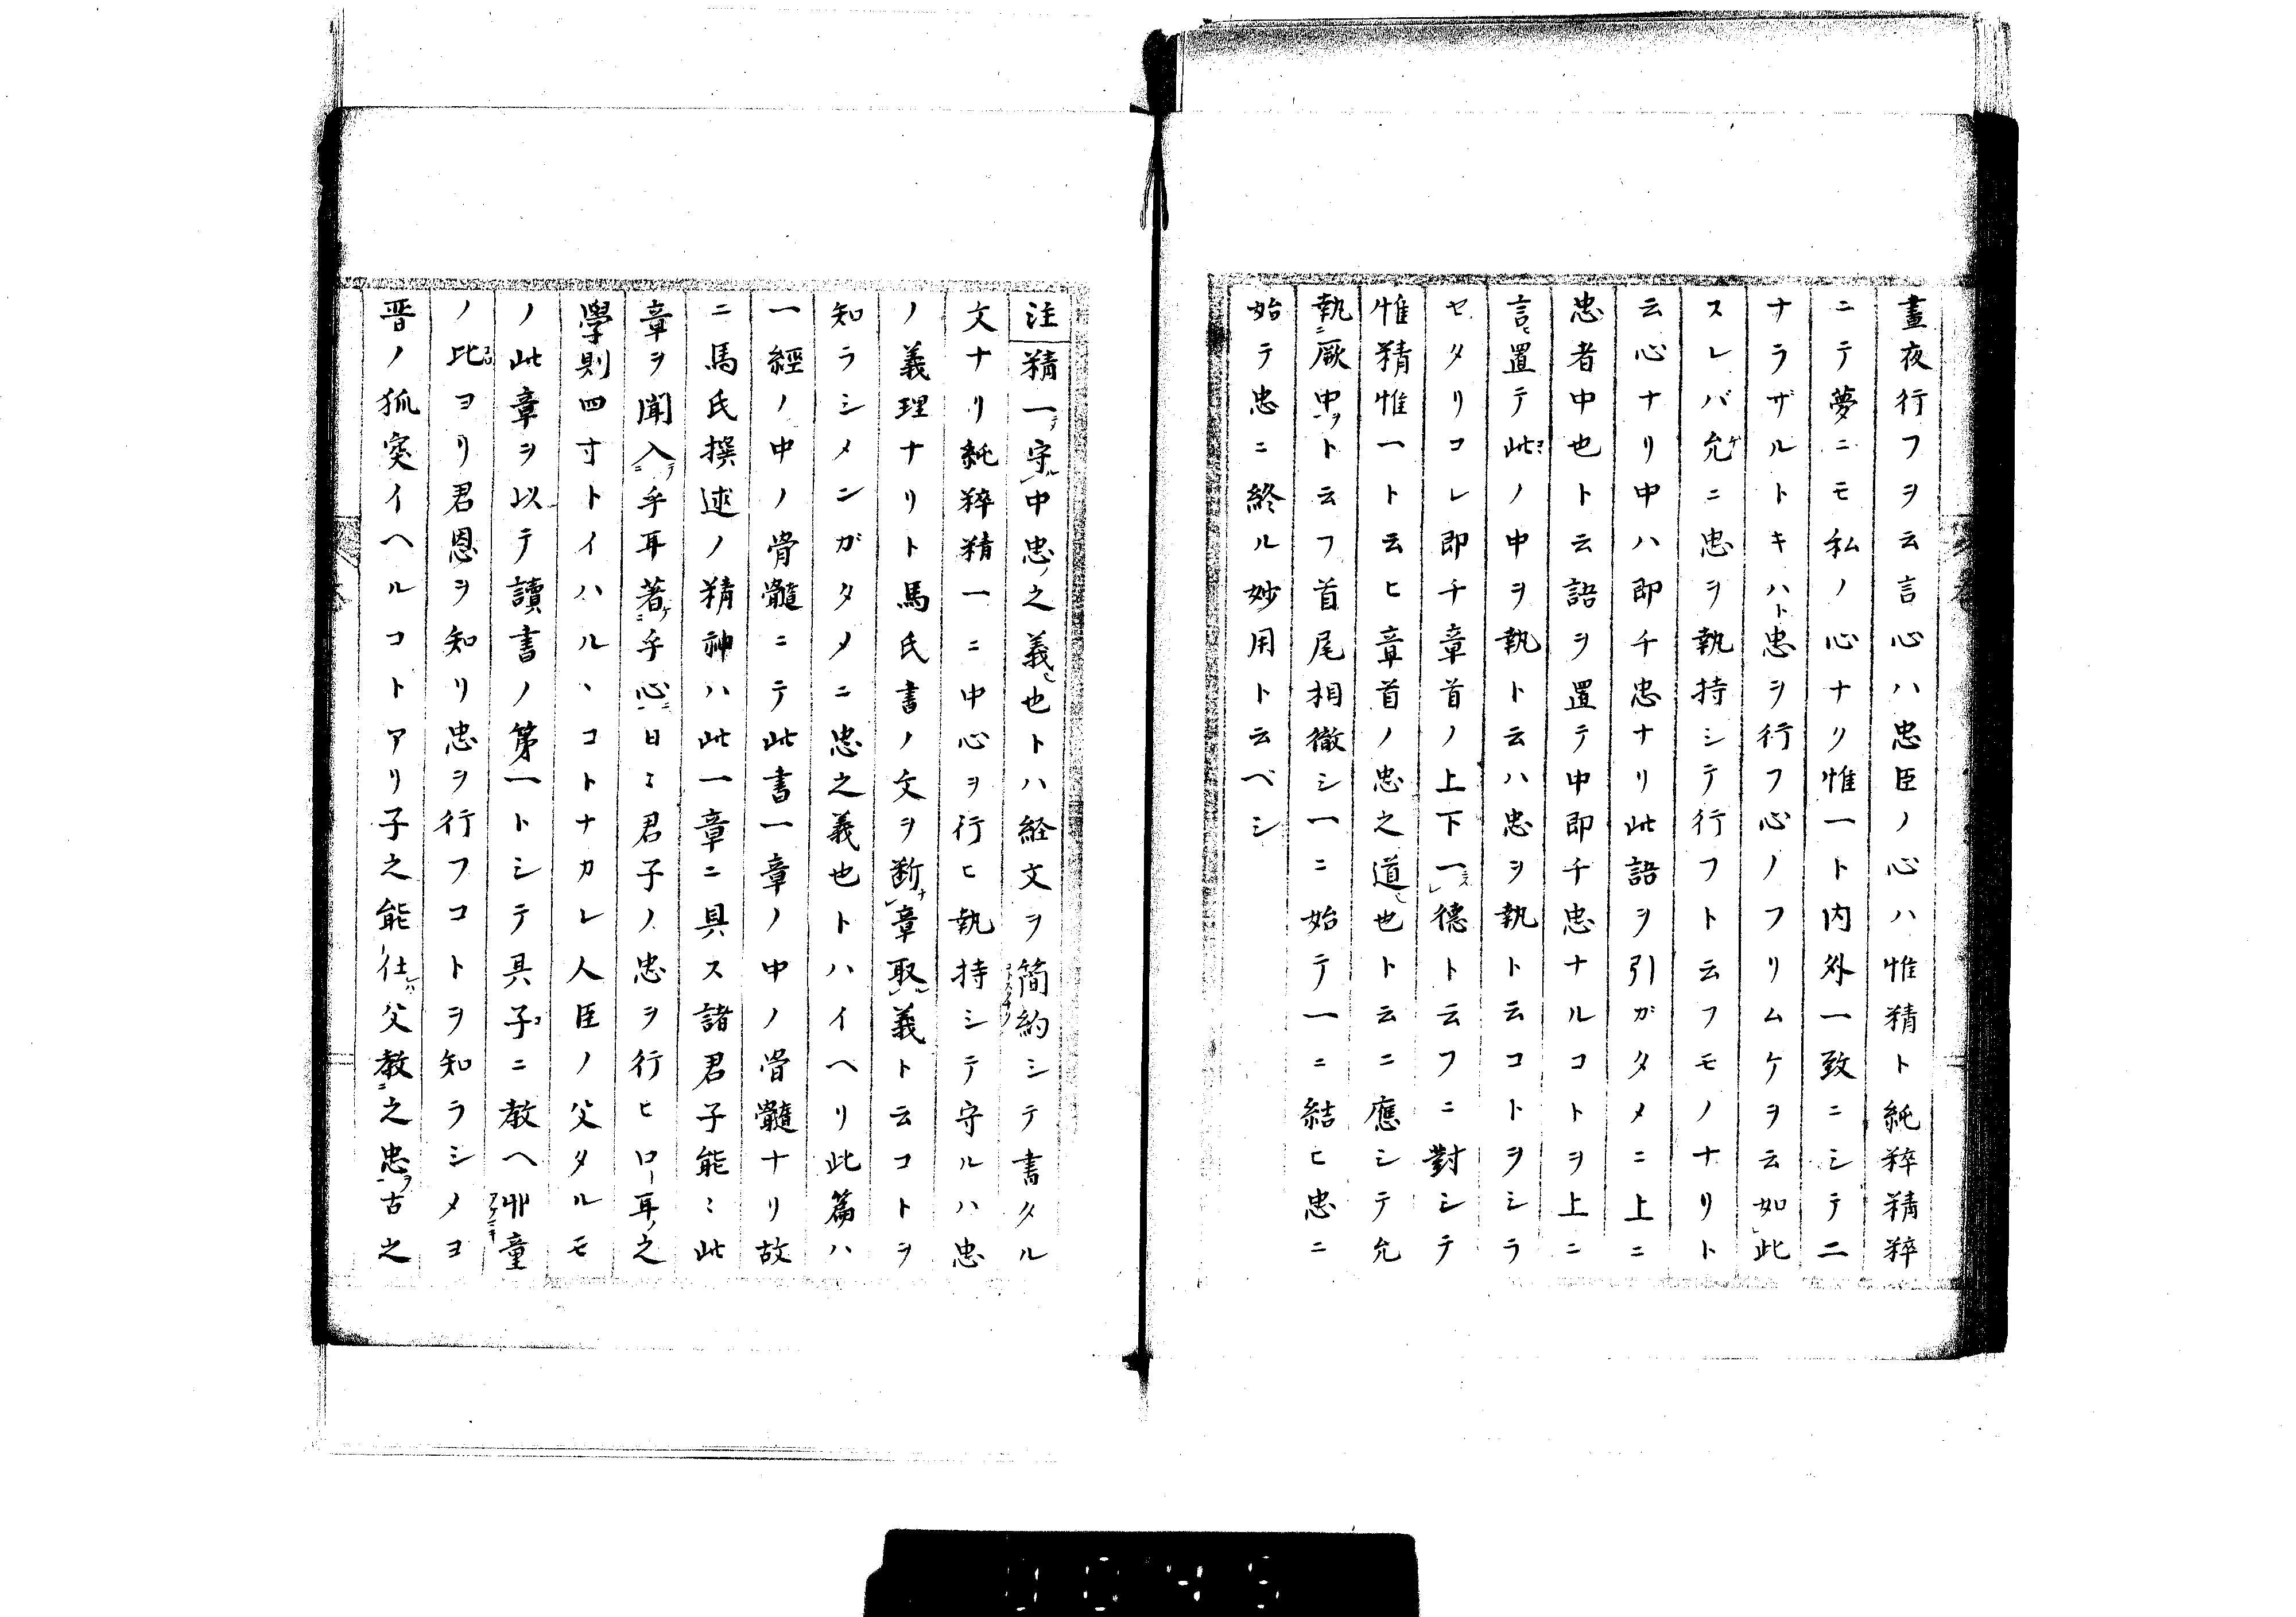 晝夜行フヲ云言心ハ忠臣ノ心ハ惟精ト純粹精粹
ニテ夢ニモ私ノ心ナリ惟一ト内外一致ニシテ二
ナラザルトキハト忠ヲ行フ心ノフリムケヲ云如此
スレバ允ニ忠ヲ執持シテ行フト云フモノナリト
云心ナリ中ハ即チ忠ナリ此語ヲ引ガタメニ上ニ
忠者中也ト云語ヲ置テ中即チ忠ナルコトヲ上ニ
言置テ此ノ中ヲ執ト云ハ忠ヲ執ト云コトヲシラ
セタリコレ即チ章首ノ上下一德ト云フニ對シテ
惟精惟一ト云ヒ章首ノ忠之道也ト云ニ應シテ允
執厥中ト云フ首尾相徹シ一ニ始テ一ニ結ヒ忠ニ
始テ忠ニ終ル妙用ト云ベシ
注精一守中忠之義也トハ経文ヲ簡約シテ書タル
文ナリ純粹精一ニ中心ヲ行ヒ執持シテ守ルハ忠
ノ義理ナリト馬氏書ノ文ヲ断章取義ト云コトヲ
知ラシメンガタメニ忠之義也トハイヘリ此篇ハ
一經ノ中ノ骨髓ニテ此書一章ノ中ノ骨髓ナリ故
ニ馬氏撰述ノ精神ハ此一章ニ具ス諸君子能ミ此
章ヲ聞入乎耳著乎心日ミ君子ノ忠ヲ行ヒ口耳之
學則四寸トイハルヽコトナカレ人臣ノ父タルモ
ノ此章ヲ以テ讀書ノ第一トシテ具子ニ教ヘ丱童
ノ比ヨリ君恩ヲ知リ忠ヲ行フコトヲ知ラシメヨ
晋ノ狐突イヘルコトアリ子之能仕父教之忠古之